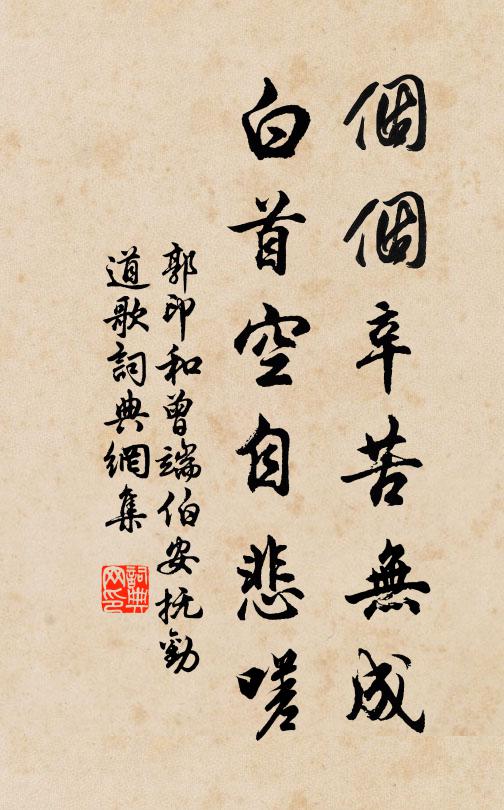 個個辛苦無成
白首空自悲嗟
郭印和曾端伯安抚勸
道歌詞典網集
詞典
网印